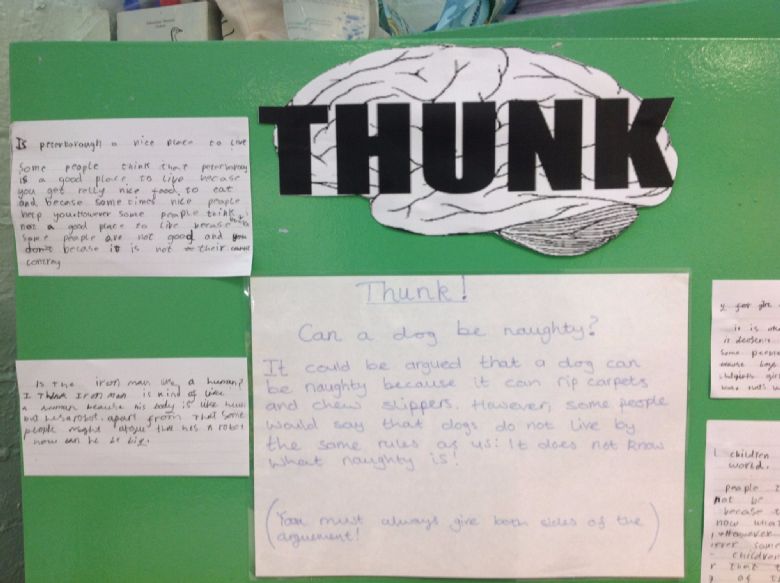 THUNK
Is peterborough a nice place to live
Some people think that peterborough
is a good place to live becase
you get relly nice food to eat
and becase some times nice people
help you. However some people think
not a good place to live becase
some people are not good and you
don't becase it is not their
contrey
Is the iron man like a human?
I think Iron man is kind of like
a human because his body is like
but hes a robot. apart from that some
people might argue that hes a robot
how can he be big.
Thunk!
Can a dog be naughty?
It could be argued that a dog can
be naughty because it can rip carpets
and chew slippers. However, some people
would say that dogs do not live by
the same rules as us: It does not know
what naughty is!
(You must always give both sides of the
arguement!)
it is
Some
children
world.
people
not be
becase
now what
However
some
children
that
of